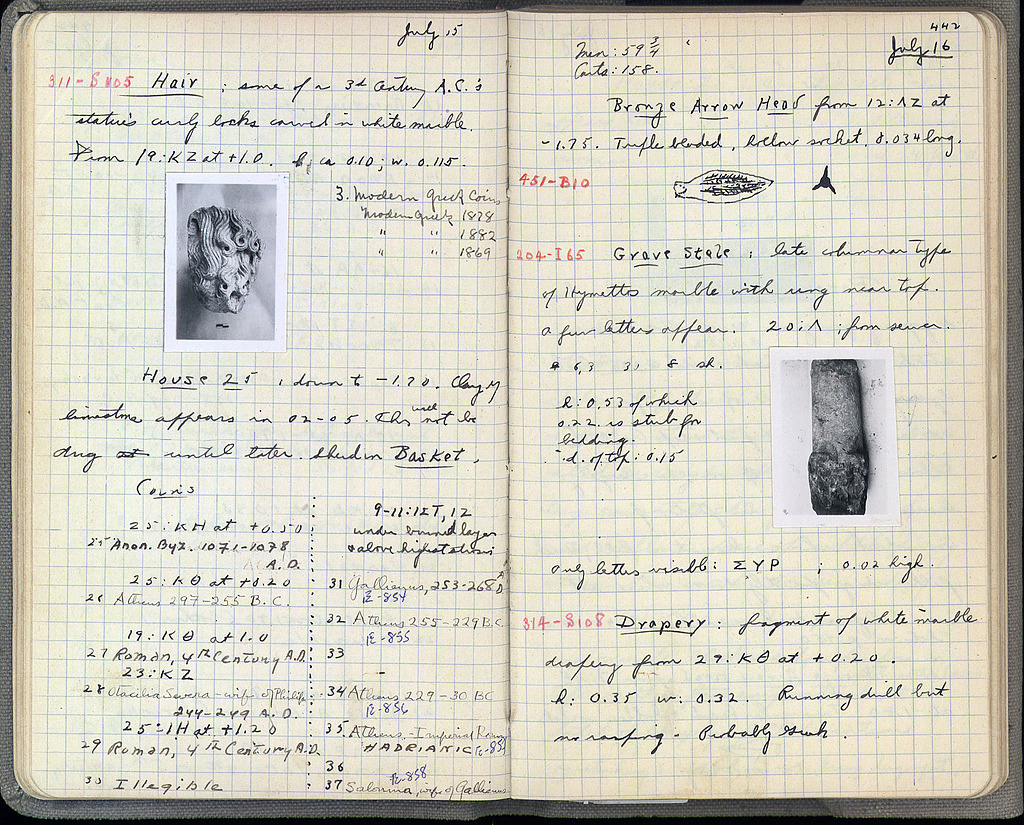 July 15
311-S105 Hair : some of a 3d Century A.C.'s
statue's curly locks carved in white marble.
From 19:KZ at +1.0. h. ca 0.10; w. 0.115.
3. Modern Greek Coins
Modern Greek 1878
" " 1882
" " 1869
House 25 ; down to -1.70. Clay of
limestone appears in 02-05. This well not be
dug until later. Shed in Basket.
Coins
25:KH at +0.50
25 Anon. Byz. 1071-1078
A.D.
25:KΘ at +0.20
26 Athens 297-255 B.C.
19:KΘ at 1.0
27 Roman, 4th Century A.D.
23:KZ
28 Otacilia Severa - wife of Philip
244-249 A.D.
25:IH at +1.20
29 Roman, 4th Century A.D.
30 Illegible
9-11:ΙΣΤ, 12
under burned layer
above highest
31 Gallienus, 253-268 AD
E-854
32 Athens 255-229 B.C.
E-855
33 -
34 Athens 229-30 BC
E-856
35 Athens-Imperial
HADRIANIC E-857
36
E-858
37 Salonina, wife of Gallienus
442
July 16
Men: 59 3/4
Carts: 158.
Bronze Arrow Head from 12:ΛZ at
-1.75. Triple bladed, hollow socket, 0.034 long.
451-B10
204-I65 Grave Stele ; late columnar type
of Hymettos marble with ring near top.
a few letters appear. 20:Λ ; from sewer.
h: 0.53 of which
0.22 is stub for
bedding.
d. of top: 0.15
only letters visible: ΣΥΡ ; 0.02 high.
314-S108 Drapery : fragment of white marble
drapery from 29:KΘ at +0.20.
h: 0.35 w: 0.32. Running drill but
no rasping. Probably Greek.